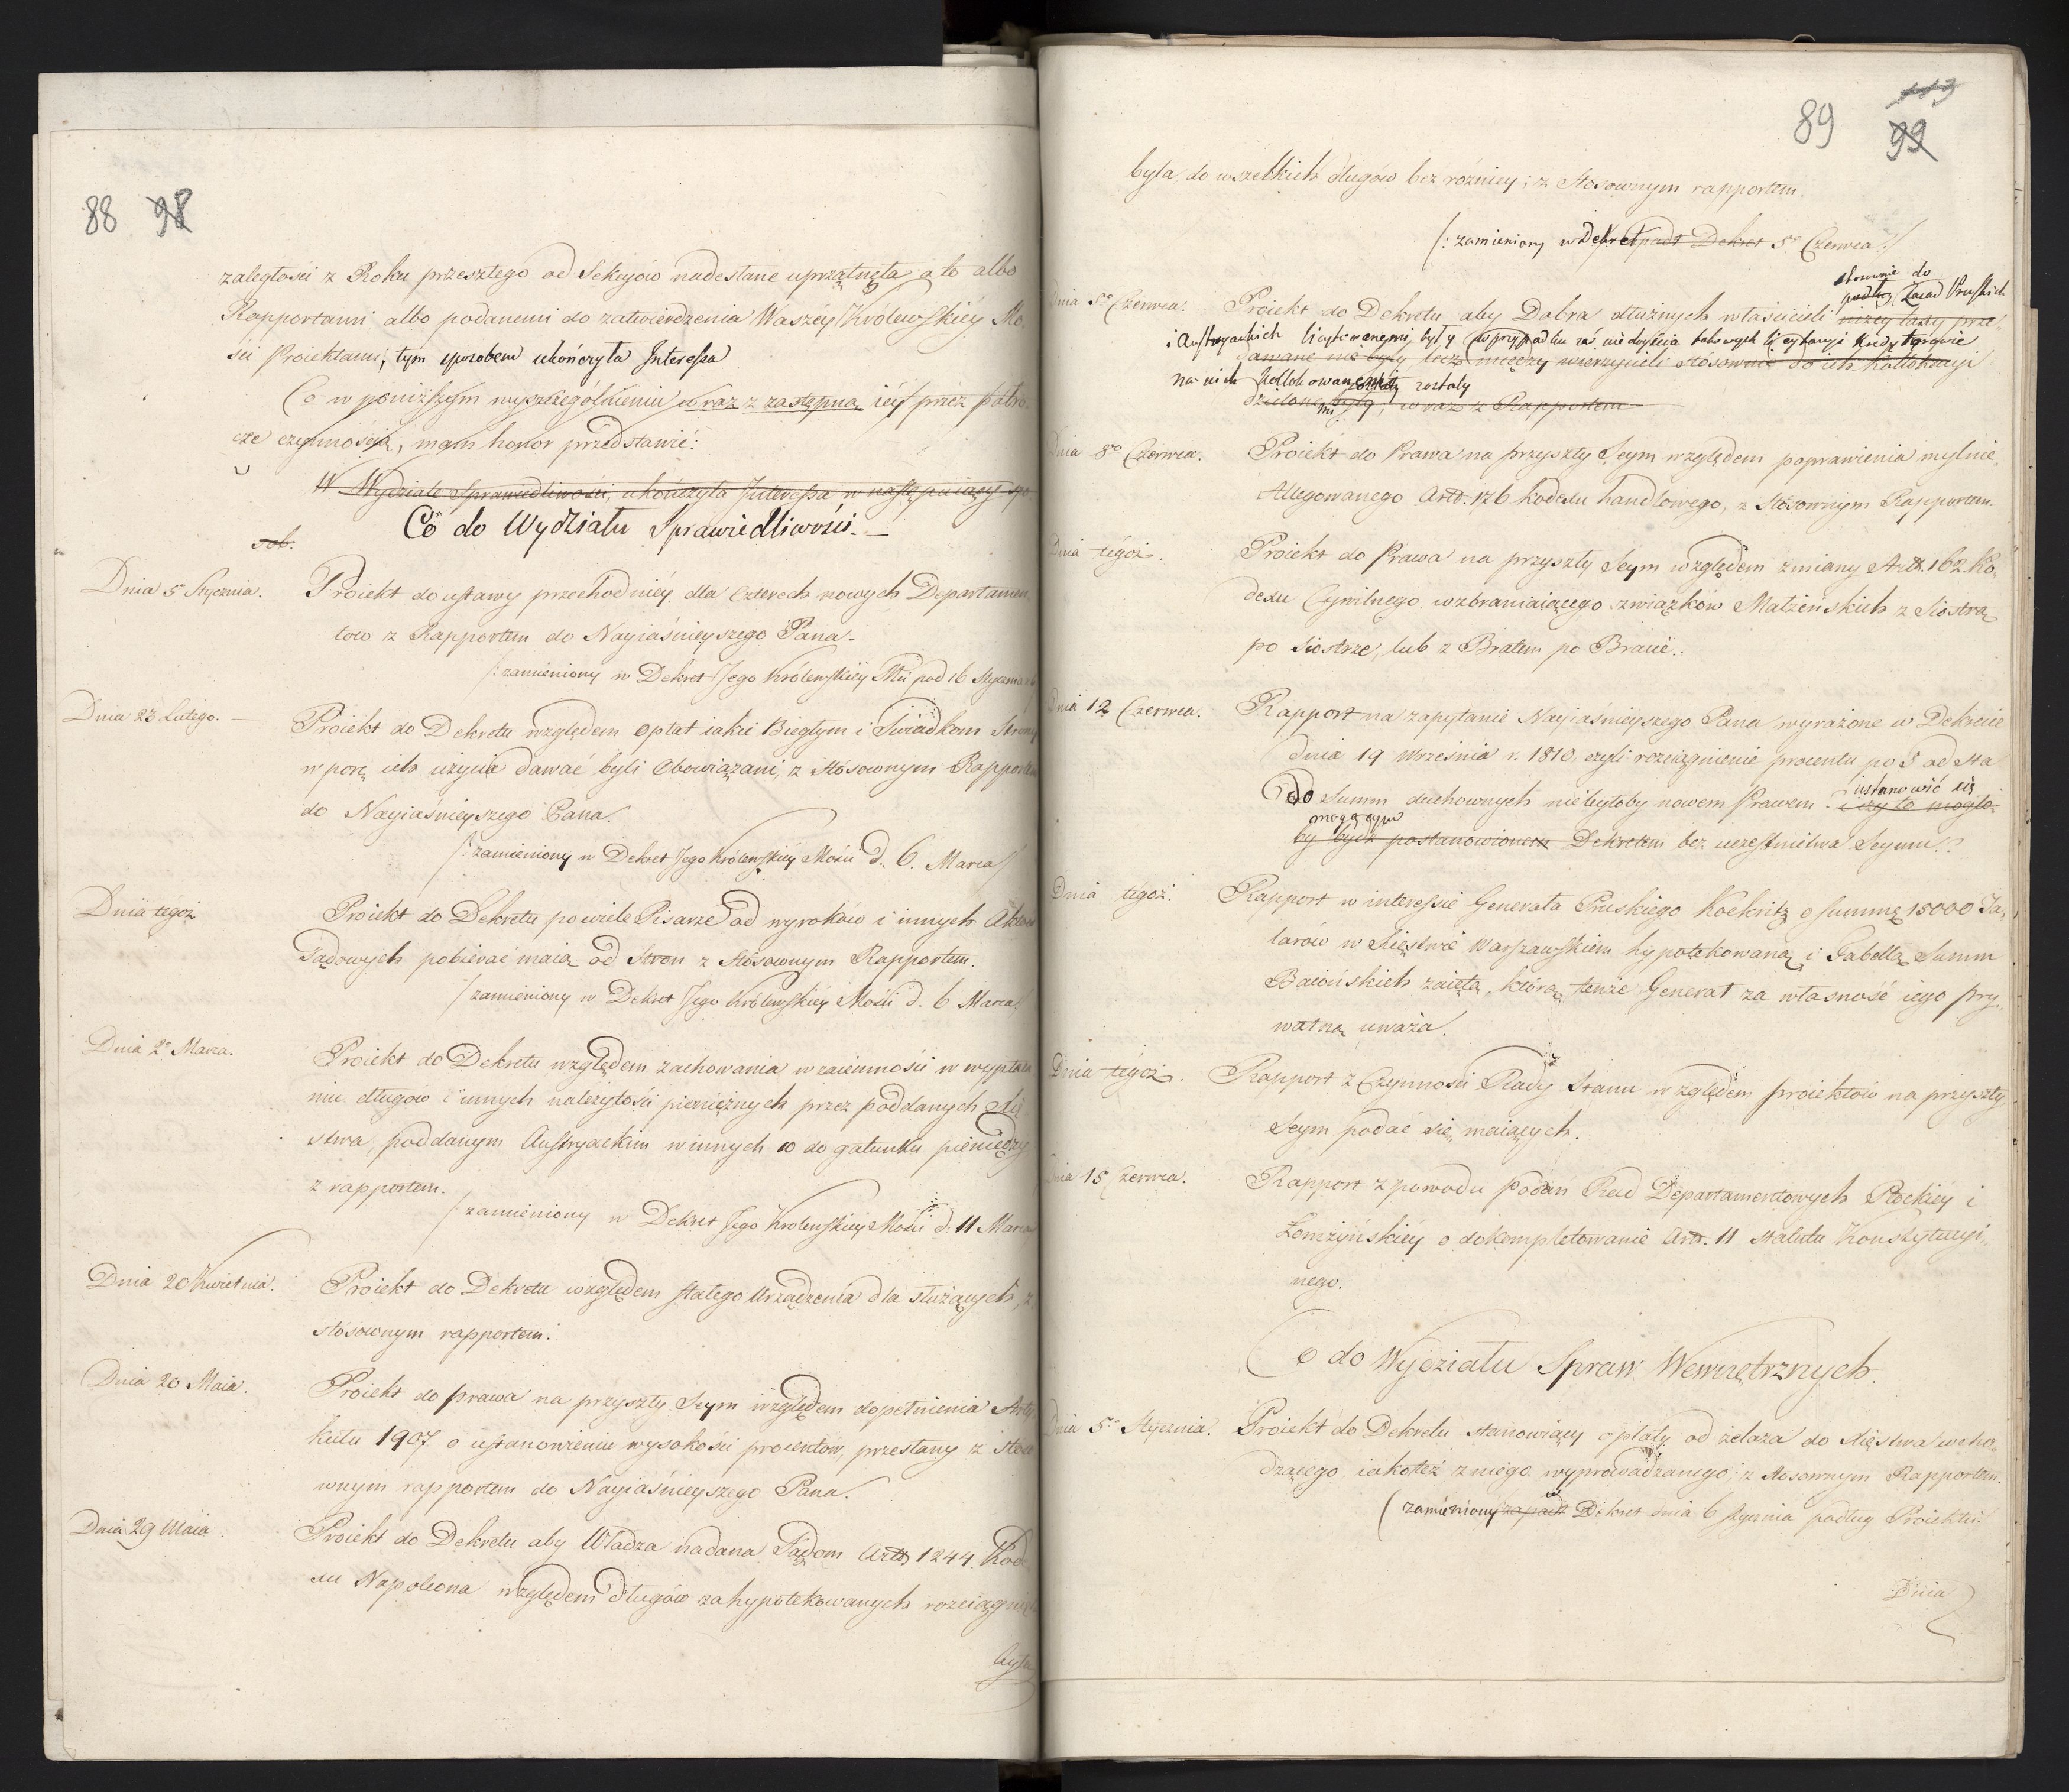 88 98
zaległości z Roku przeszłego od Sekcyów nadesłane uprzątnęła a to albo
Rapportami albo podanemi do zatwierdzenia Waszéy Królewskiéy Mo,
ści Proiektami, tym sposobem ukończyła Interessa
Co w poniższym wyszczególnieniu wraz z zastępną iéy przez półro,
cze czynnością, mam honor przedstawić:
W Wydziale Sprawiedliwości, ukończyła Interessa w następuiący spo
sob.
Co do Wydziału Sprawiedliwości.—
Dnia 5° Stycznia. Proiekt do ustawy przechodniéy dla czterech nowych Departamen,
tow z Rapportem do Nayiaśnieyszego Pana.
/: zamieniony w Dekret Jego Królewskiéy Mci pod 16 Stycznia
Dnia 23 Lutego. — Proiekt do Dekretu względem opłat iakie Biegłym i Świadkom Strony
w porę ich użycia dawać byli obowiązani, z stósownym Rapportem
do Nayiaśnieyszego Pana.
/: zamieniony w Dekret Jego Królewskiéy Mości d. 6. Marca/
Dnia tégoż Proiekt do Dekretu po wiele Pisarze od wyroków i innych Aktow
Sądowych pobierać maią od Stron z stósownym Rapportem.
/ zamieniony w Dekret Jego Królewskiéy Mości d. 6 Marca/
Dnia 2° Marca. Proiekt do Dekretu względem zachowania wzaiemności w wypłace
niu długów i innych należytości pieniężnych przez poddanych Xię
stwa, poddanym Austryackim winnych co do gatunku pieniędzy
z rapportem.
/ zamieniony w Dekret Jego Królewskiéy Mości d. 11 Marca
Dnia 20 Kwietnia. Proiekt do Dekretu względem stałego Urządzenia dla służących, z
stósownym rapportem.
Dnia 20 Maia. Proiekt do prawa na przyszły Seym względem dopełnienia Arty
kułu 1907 o ustanowieniu wysokości procentów, przesłany z stóso
wnym rapportem do Nayiaśnieyszego Pana.
Dnia 29 Maia Proiekt do Dekretu aby Władza nadana Sądom Artt 1244. Kode
xu Napoleona względem długów zahypotekowanych rozciągnię
była
113
89 99
była do wszelkich długów bez różnicy; z stosownym rapportem.
/: zamieniony w Dekret padł Dekret 5° Czerwca:/
stosownie do
podług Zasad Pruskich
Dnia 5° Czerwca. Proiekt do Dekretu aby Dobra dłużnych właścicieli niżey taxy prze,
i Austryackich licytowanemi były w przypadku zaś nie doyścia takowych licytacyi Kredytorowie
dawane nie były lecz między wierzycieli stósownie do ich Kollokacyi
na nich Kollokowanemi zostały
dzielone były; wraz z Rapportem
Dnia 8° Czerwca. Proiekt do Prawa na przyszły Seym względem poprawienia mylnie,
Allegowanego Artt. 176. kodexu handlowego, z stósownym Rapportem.
Dnia tégoż. Proiekt do Prawa na przyszły Seym względem zmiany Artt. 162. Ko,
dexu Cywilnego wzbraniaiącego związków Małżeńskich z Siostrą
po Siostrze, lub z Bratem po Bracie.
Dnia 12 Czerwca. Rapport na zapytanie Nayiaśnieyszego Pana wyrażone w Dekrecie
dnia 19 Września r. 1810, czyli rozciągnienie procentu po 5 od sta
do Summ duchownych nie byłoby nowem Prawem. i czy to mogło
ustanowić się
mogącym
by bydź postanowionem Dekretem bez uczestnictwa Seymu.?
Dnia tegoż. Rapport w interessie Generała Pruskiego Koekritz o summę 15000 Ta,
larów w Xięstwie Warszawskiem hypotekowaną i Tabellą Summ
Baiońskich zaiętą, którą tenże Generał za własność iego pry,
watną uważa.
Dnia tégoż. Rapport z Czynności Rady Stanu względem proiektów na przyszły
Seym podać się maiących.
Dnia 15 Czerwca. Rapport z powodu podań Rad Departamentowych Płockiéy i
Łomżyńskiéy o dokompletowanie Artt. 11 Statutu Konstytucyi,
nego.
Co do Wydziału Spraw Wewnętrznych.
Dnia 5° Stycznia. Proiekt do Dekretu stanowiący opłatę od żelaza do Xięstwa wcho,
dzącego, iakoteż z niego wyprowadzanego; z stosownym Rapportem.
w
(zamieniony zapadł Dekret dnia 6 Stycznia podług Proiektu:/
Dnia